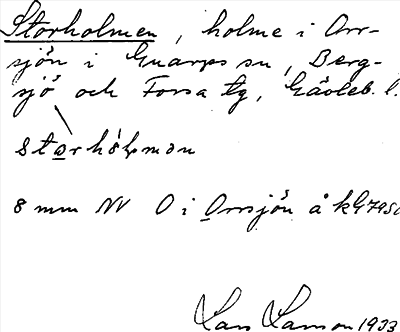 Storholmen, holme i Orr-
sjön i Gnarps sn, Berg-
sjö och Forsa tg, Gävleb. l.
storhòlmən
8 mm NV O i Orrsjön å kG7950
Lars Larsson 1933